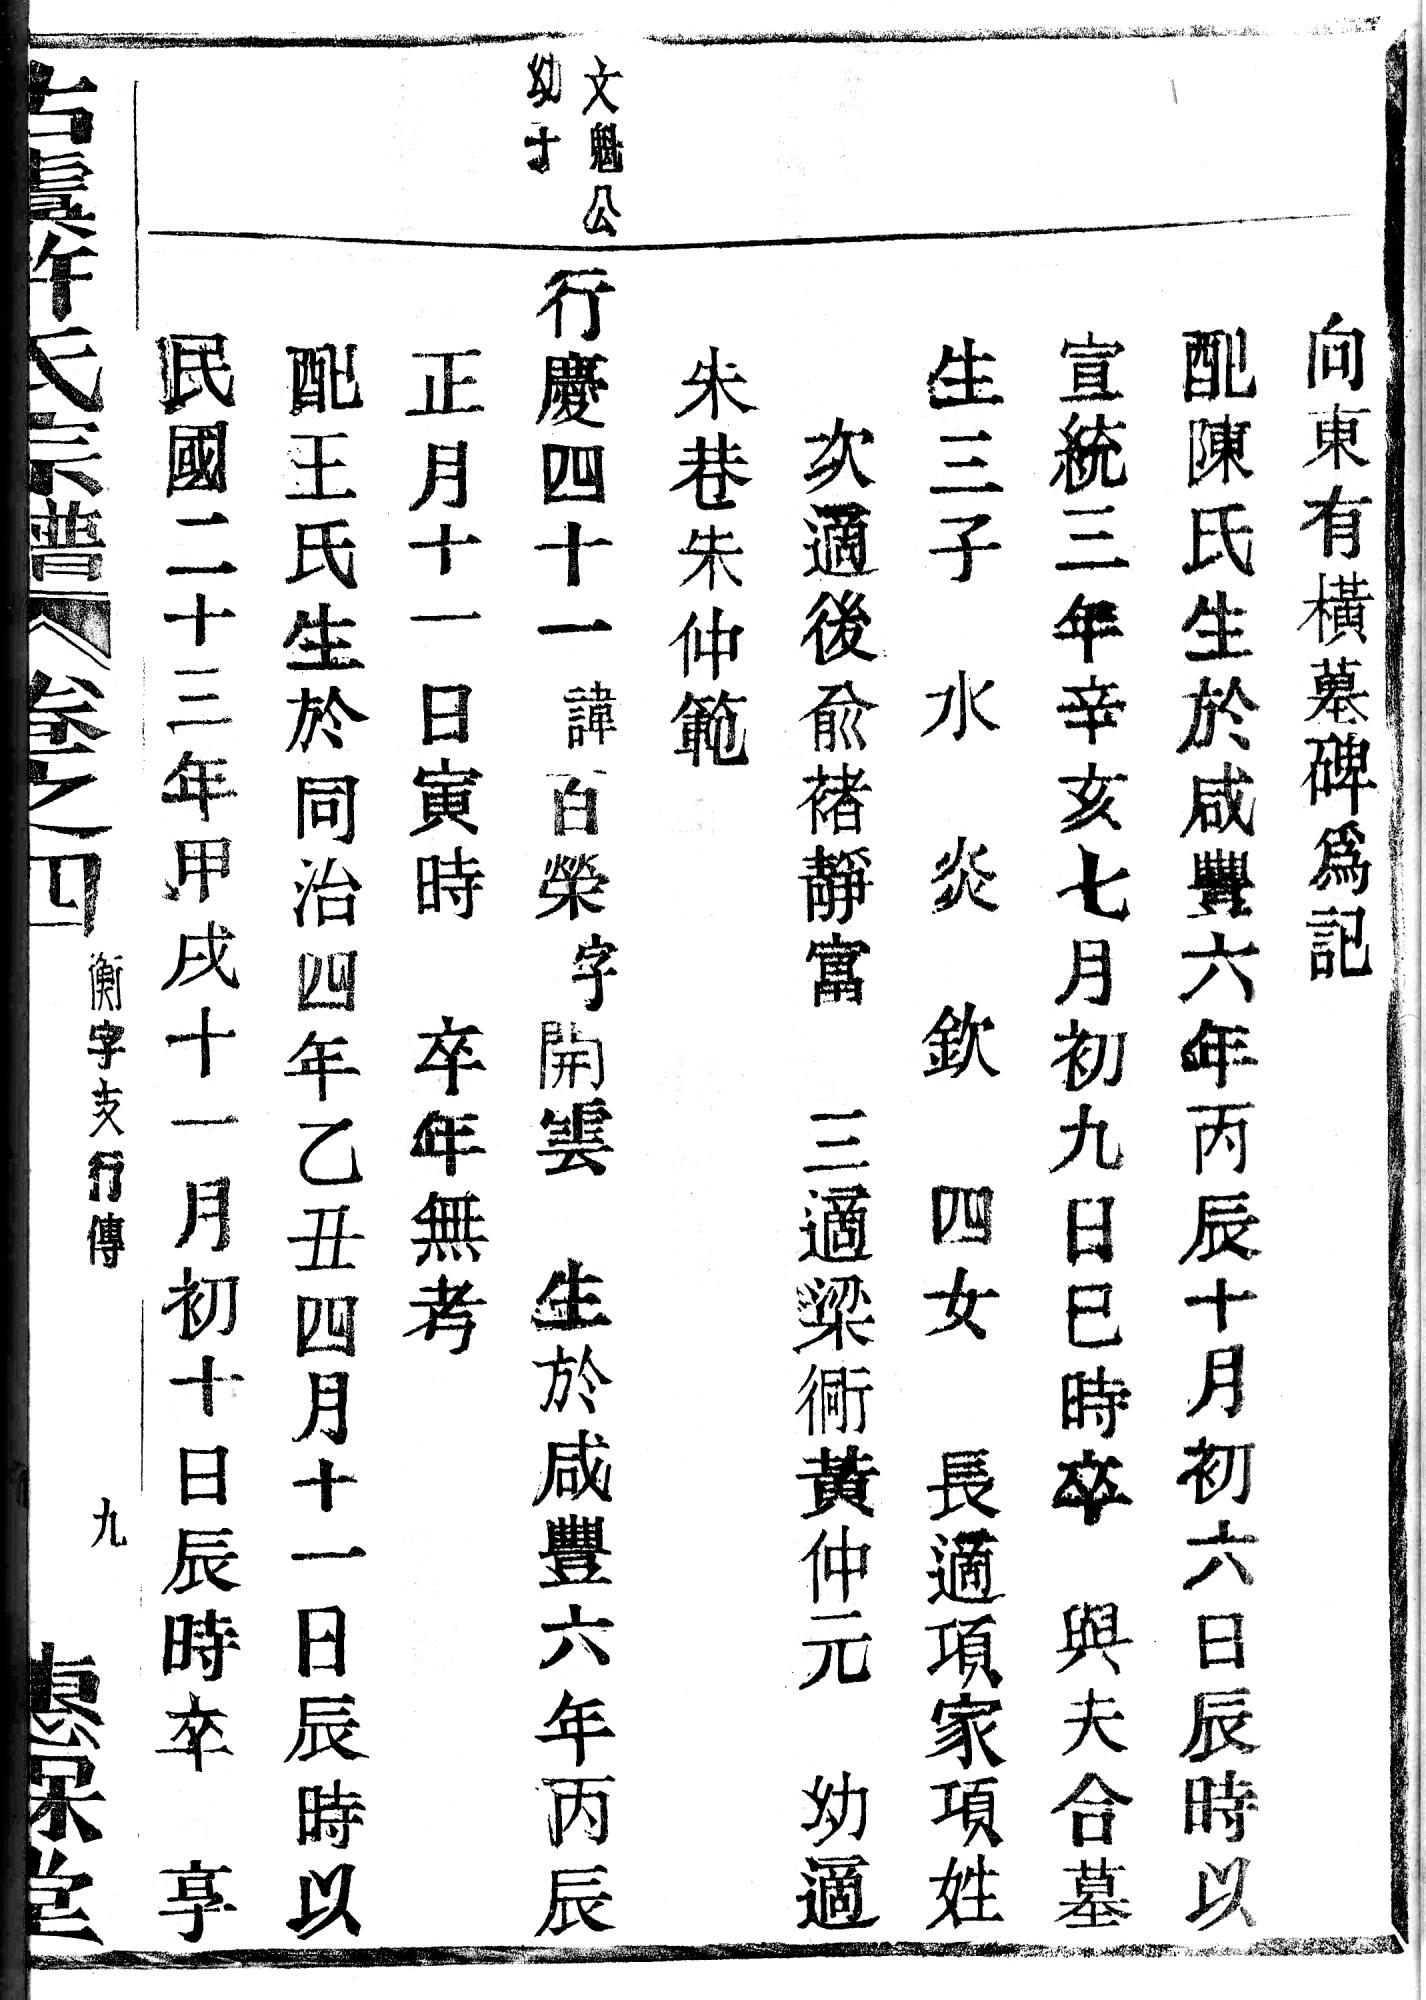 向東有橫墓碑爲記
配陳氏生於咸豐六年丙辰十月初六日辰時以
宣統三年辛亥七月初九日巳時卒　與夫合墓
生三子　水　炎　欽　四女　長適項家項姓
次適後俞褚靜富　三適梁衕黃仲元　幼適
朱巷朱仲範
文魁公
幼子
行慶四十一諱百榮字開雲　生於咸豐六年丙辰
正月十一日寅時　卒年無考
配王氏生於同治四年乙丑四月十一日辰時以
民國二十三年甲戌十一月初十日辰時卒　享
古虞許氏宗譜 卷之四 衡字支行傳 九 惠保堂